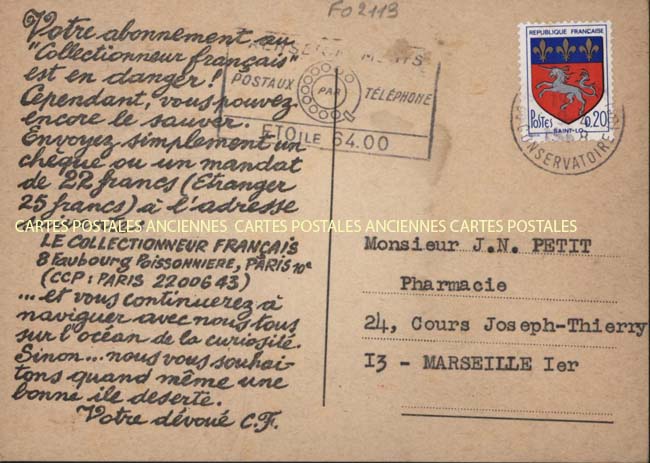 Fo 2113
Votre abonnement au
"Collectionneur français"
est en danger!
Cependant, vous pouvez
encore le sauver.
Envoyez simplement un
chèque ou un mandat
de 22 francs (Etranger
25 francs) à l'adresse
CARTES POSTALES ANCIENNES CARTES POSTALES ANCIENNES CARTES POSTALES
LE COLLECTIONNEUR FRANÇAIS
8 Faubourg Poissonniere, PARIS 10e
(CCP: PARIS 2200643)
...et vous continuerez à
naviguer avec nous tous
sur l'océan de la curiosité.
Sinon... nous vous souhai-
tons quand même une
bonne ile deserte.
Votre dévoué C.F.
POSTAUX PAR TÉLÉPHONE
ETOILE 64.00
REPUBLIQUE FRANÇAISE
Postes 0,20
SAINT-LO
CONSERVATOIRE
Monsieur J.N. PETIT
Pharmacie
24, Cours Joseph-Thierry
I3 - MARSEILLE Ier